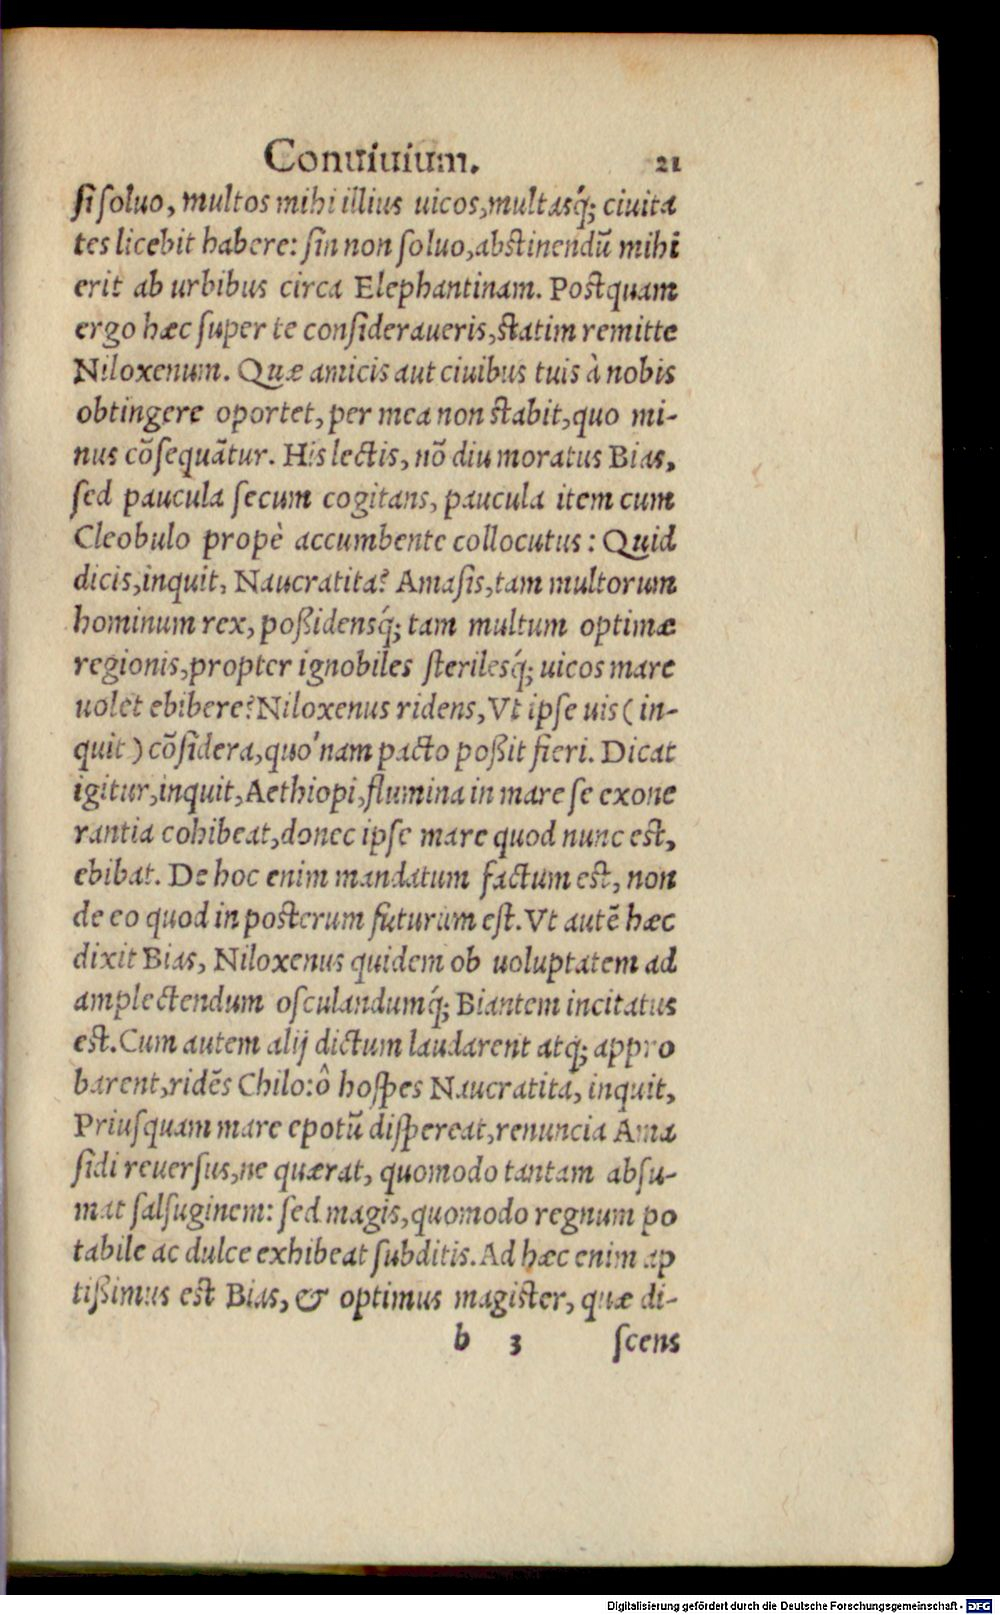 Conuiuium. 21
si soluo, multos mihi illius uicos, multasq́; ciuita
tes licebit habere: sin non soluo, abstinendū mihi
erit ab urbibus circa Elephantinam. Postquam
ergo hæc super te consideraueris, statim remitte
Niloxenum. Quæ amicis aut ciuibus tuis à nobis
obtingere oportet, per mea non stabit, quo mi-
nus cōsequātur. His lectis, nō diu moratus Bias,
sed paucula secum cogitans, paucula item cum
Cleobulo propè accumbente collocutus: Quid
dicis, inquit, Naucratita? Amasis, tam multorum
hominum rex, poßidensq́; tam multum optimæ
regionis, propter ignobiles sterilesq́; uicos mare
uolet ebibere? Niloxenus ridens, Vt ipse uis (in-
quit) cōsidera, quo'nam pacto poßit fieri. Dicat
igitur, inquit, Aethiopi, flumina in mare se exone
rantia cohibeat, donec ipse mare quod nunc est,
ebibat. De hoc enim mandatum factum est, non
de eo quod in posterum futurum est. Vt autē hæc
dixit Bias, Niloxenus quidem ob uoluptatem ad
amplectendum osculandumq́; Biantem incitatus
est. Cum autem alij dictum laudarent atq́; appro
barent, ridēs Chilo: ô hospes Naucratita, inquit,
Priusquam mare epotū dispereat, renuncia Ama
sidi reuersus, ne quærat, quomodo tantam absu-
mat salsuginem: sed magis, quomodo regnum po
tabile ac dulce exhibeat subditis. Ad hæc enim ap
tißimus est Bias, & optimus magister, quæ di-
b 3 scens
Digitalisierung gefördert durch die Deutsche Forschungsgemeinschaft - DFG